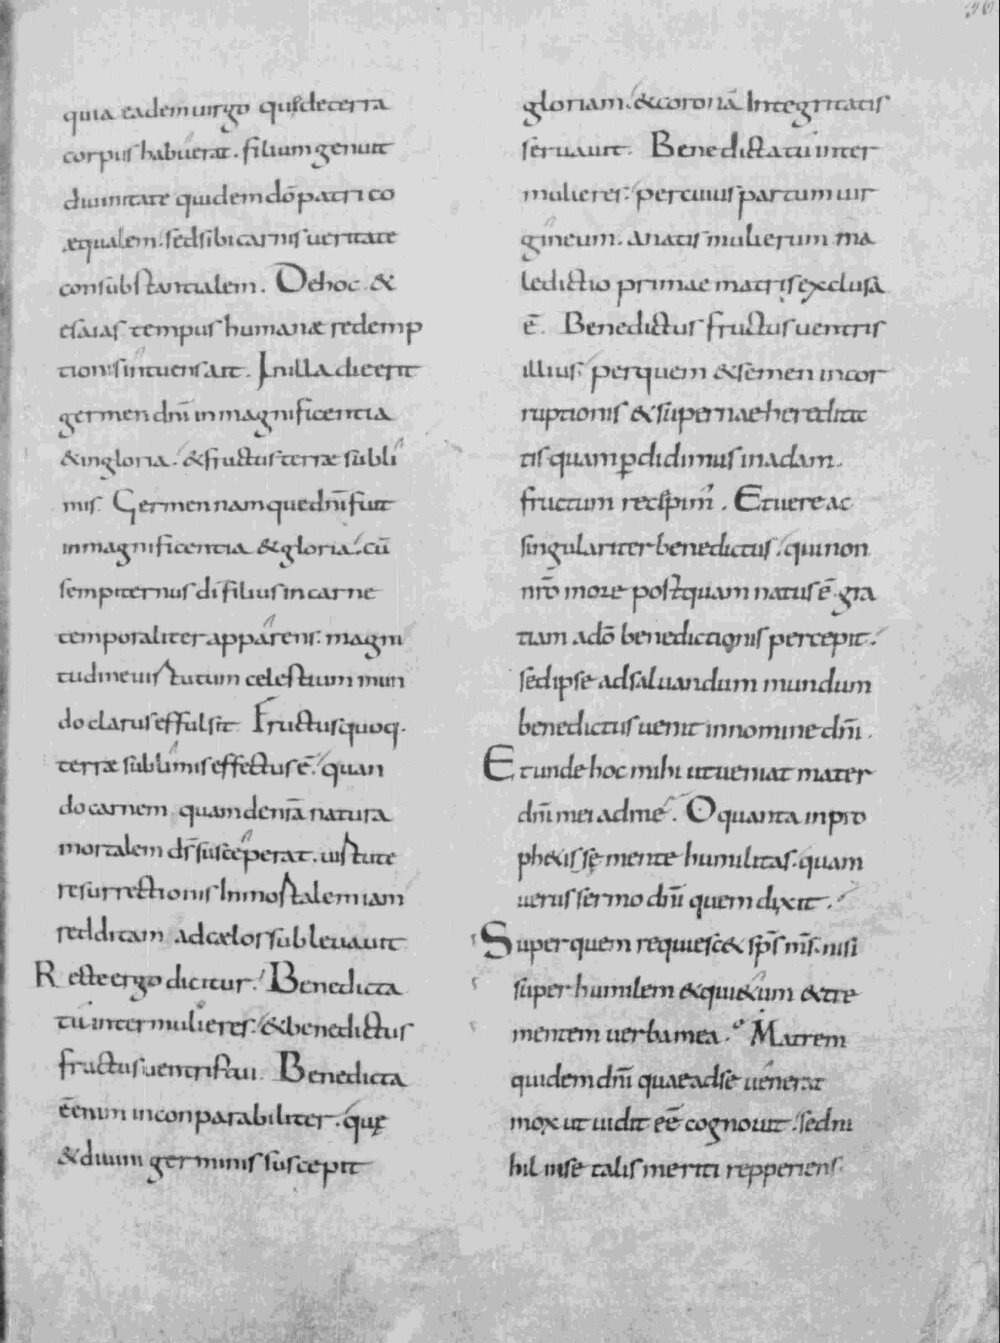 quia eadem uirgo que de terra
corpus habuerat. filium genuit
diuinitate quidem dō patri co
æqualem. sed sibi carnis ueritate
consubstantialem. De hoc &
esaias tempus humanæ redemp
tionis intuens ait. In illa die erit
germen dn̄i in magnificentia
& in gloria. & fructus terræ subli
mis. Germen namque dn̄i fuit
in magnificentia & gloria. cū
sempiternus dī filius in carne
temporaliter apparens. magni
tudine uirtutum celestium mun
do clarus effulsit. Fructus quoq·
terræ sublimis effectus ē. quan
do carnem quam de nr̄a natura
mortalem ds̄ susceperat. uirtute
resurrectionis Inmortalem iam
redditam ad cælos subleuauit
Recte ergo dicitur. Benedicta
tu inter mulieres. & benedictus
fructus uentris tui. Benedicta
eēnim inconparabiliter. quę
& diuini germinis suscepit
gloriam. & coronā Integritatis
seruauit. Benedicta tu inter
mulieres. per cuius partum uir
gineum. a natis mulierum ma
ledictio primae matris exclusa
ē. Benedictus fructus uentris
illius. per quem & semen incor
ruptionis & supernae heredita
tis quam ꝑdidimus in adam.
fructum recipim'. Et uere ac
singulariter benedictus. qui non
nr̄o more postquam natus ē. gra
tiam a dō benedictionis percepit.
sed ipse ad saluandum mundum
benedictus uenit in nomine dn̄i.
Et unde hoc mihi ut ueniat mater
dn̄i mei ad me. O quanta in pro
ph&issę mente humilitas. quam
uerus sermo dn̄i quem dixit.
Super quem requiesc& sp̄s ms̄. nisi
super humilem & qui&um & tre
mentem uerba mea. Matrem
quidem dn̄i quae ad se uenerat
mox ut uidit eē cognouit. sed ni
hil in se talis meriti repperiens